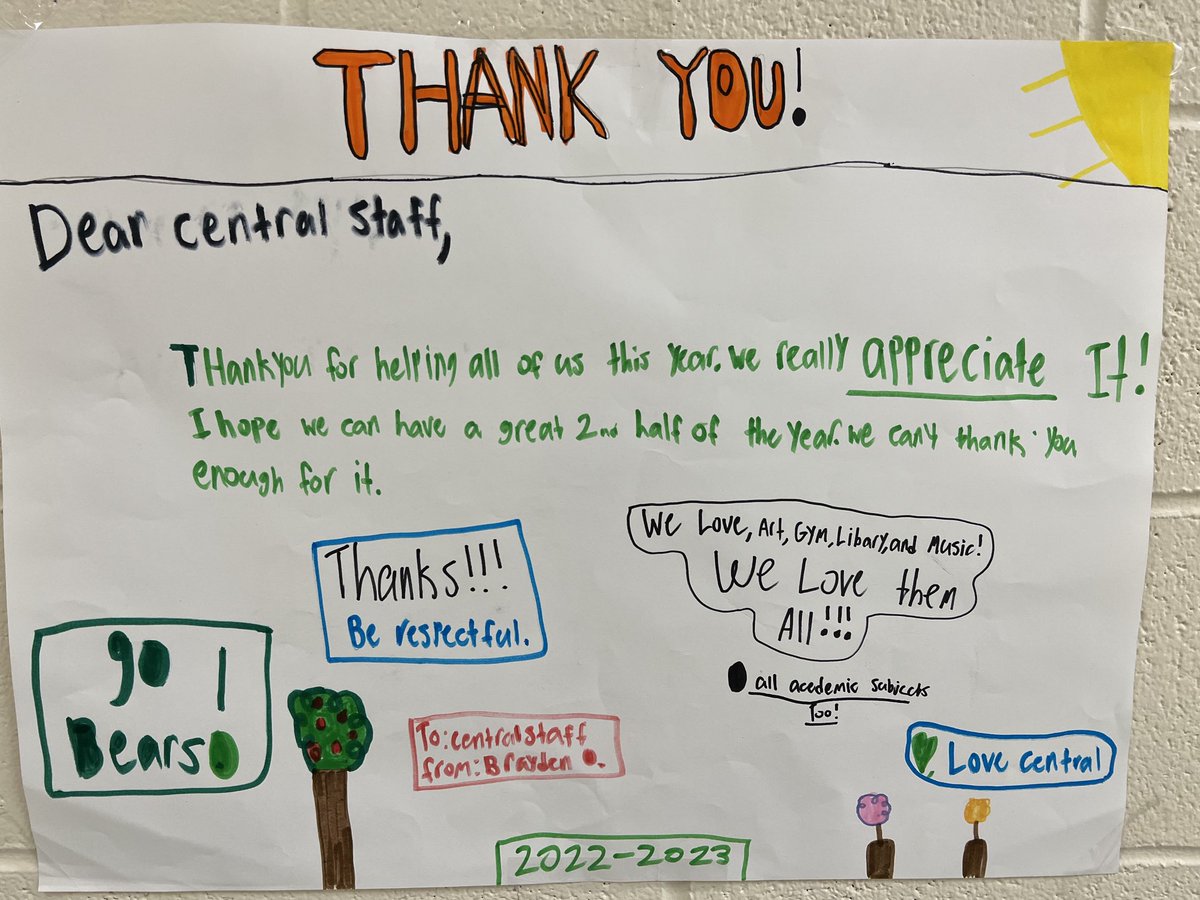 THANK YOU!
Dear central staff,
THankyou for helping all of us this year. we really appreciate It!
I hope we can have a great 2nd half of the year. we can't thank you
enough for it.
We Love, Art, Gym, Libary, and Music!
We Love them
All!!!
Thanks!!!
Be respectful.
go !
Bears
all acedemic subjects
Too!
To: central staff
from: Brayden
Love central
2022-2023